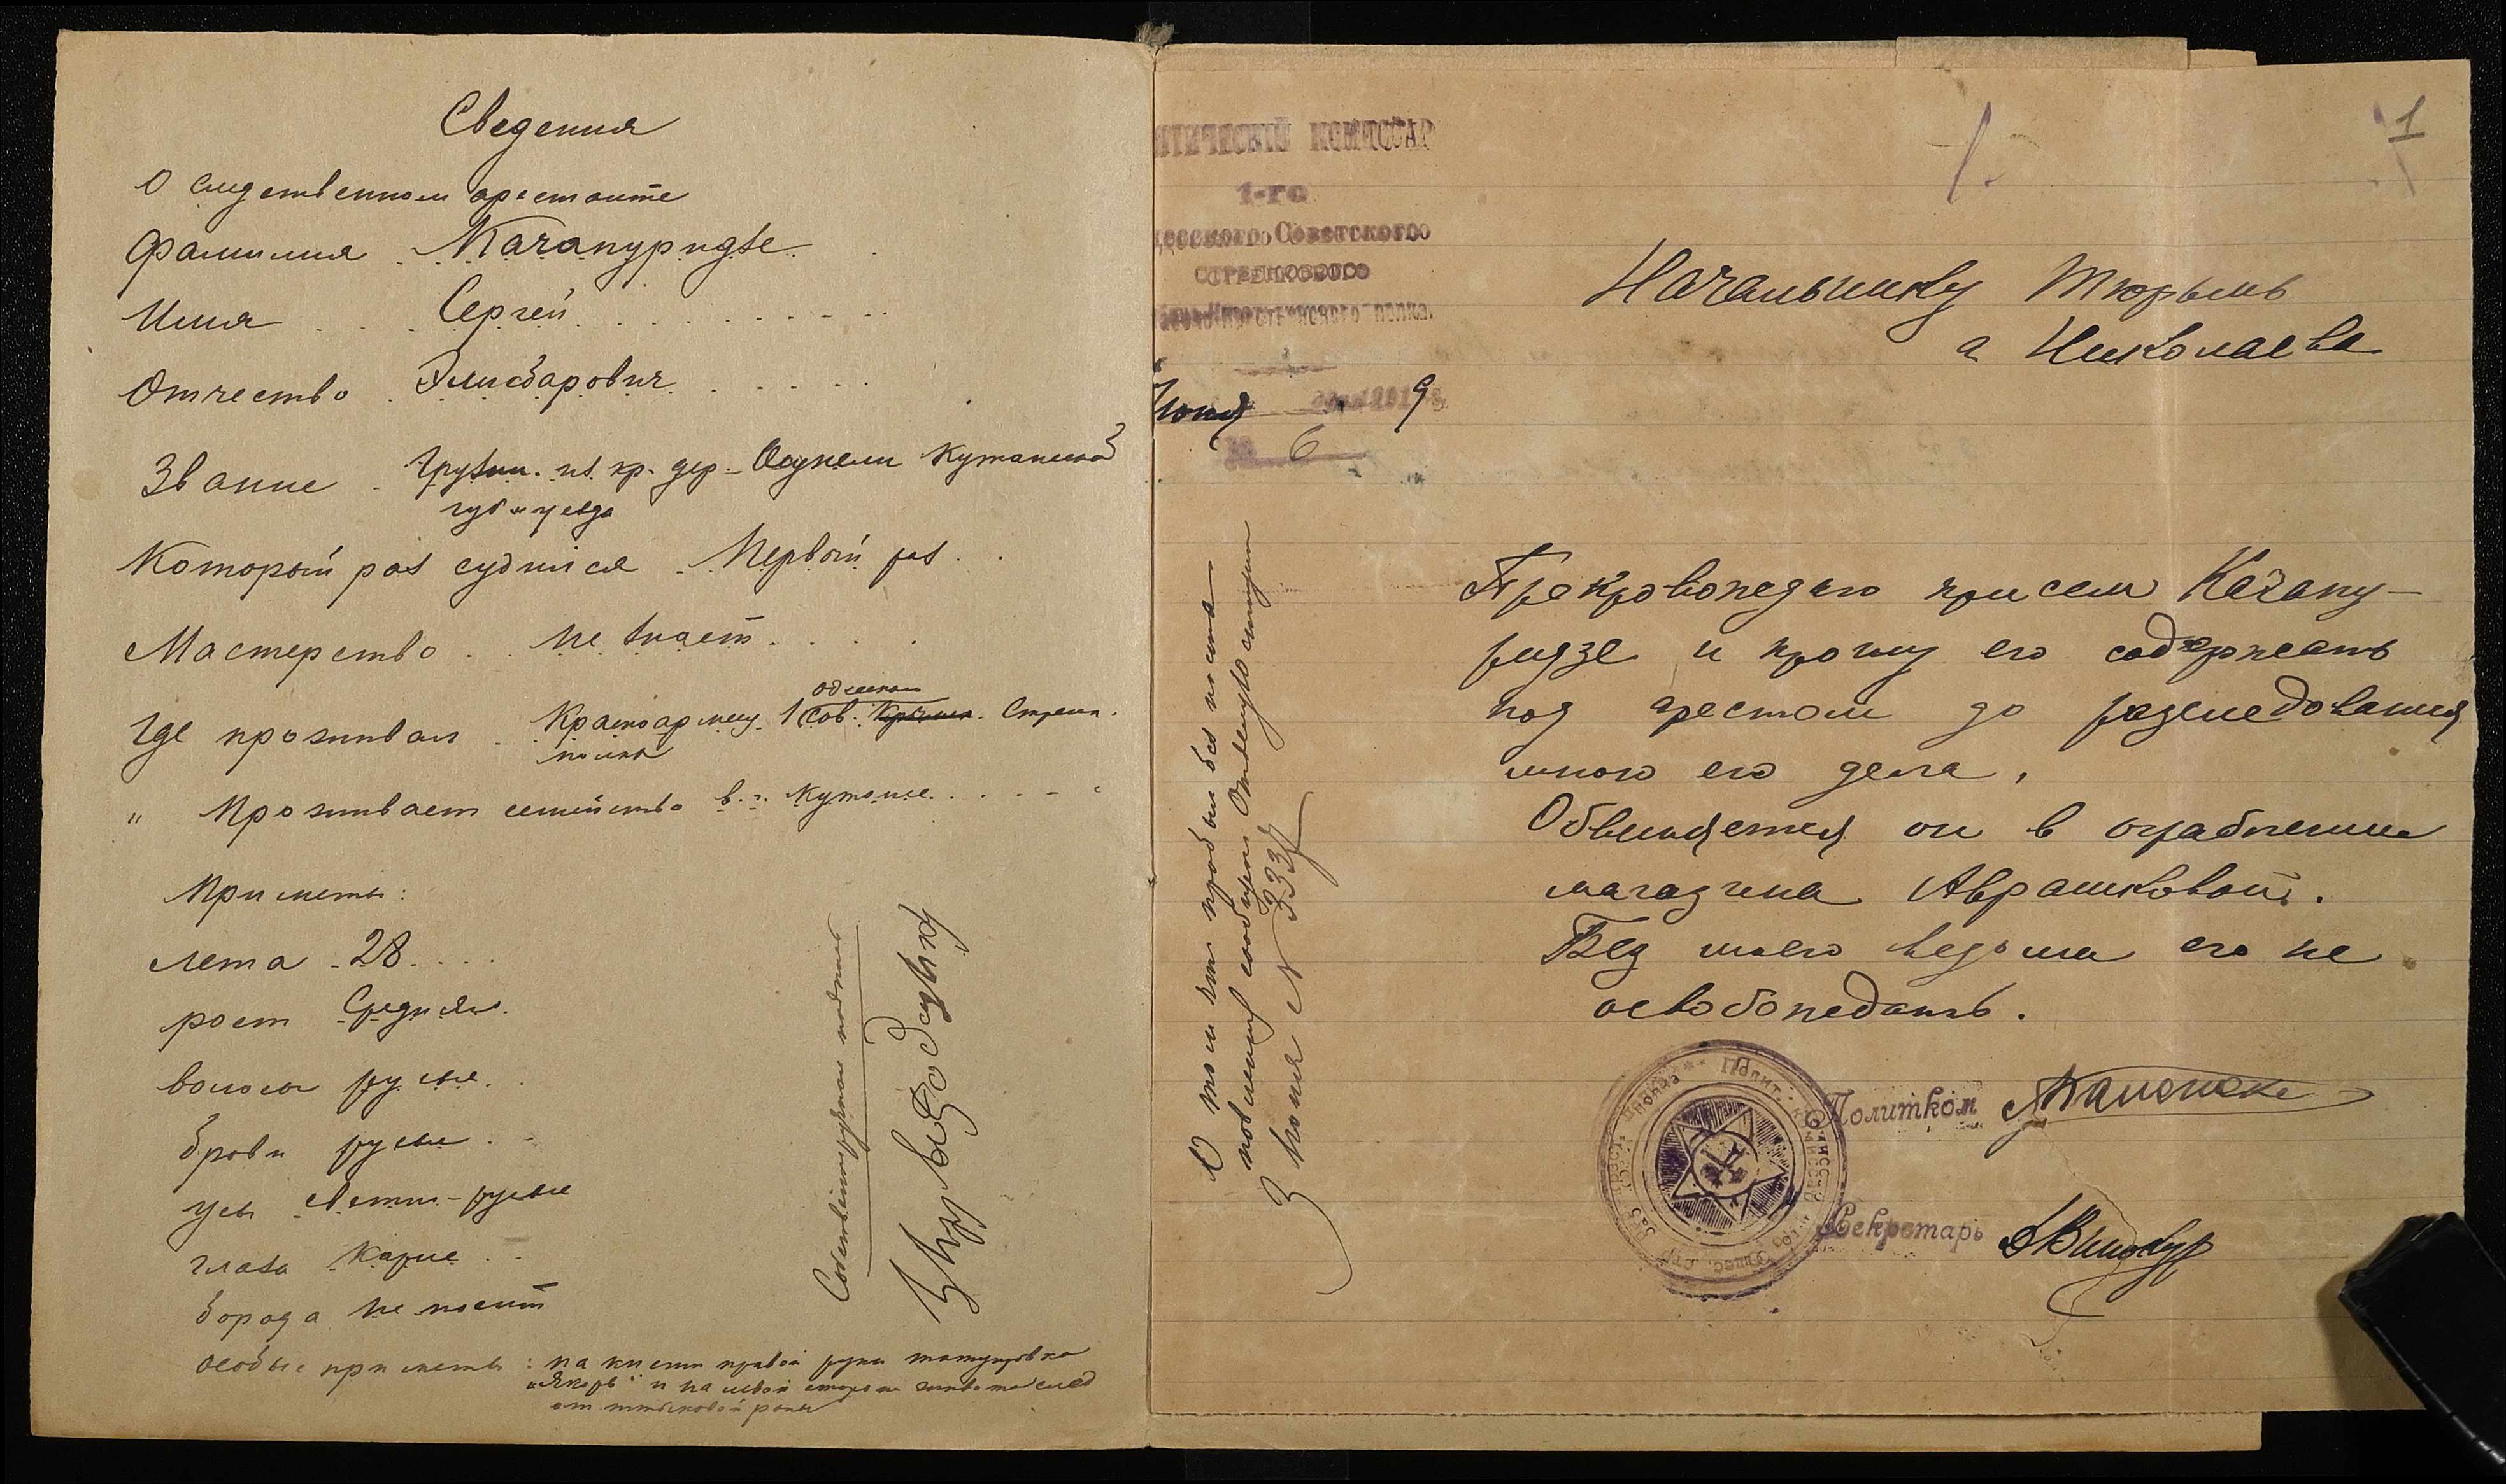 Сведения
О следственном арестанте
Фамилия Качануридзе
Имя Сергей
Отчество Элисбарович
Звание Грузин. из кр. дер. Кутаисской
губ и уезда
Который раз судился Первый раз
Мастерство не знает
одесском
Где проживал Красноармеец 1 Сов. Стрелк.
полка
" Проживает семейство в г. Кутаисе
Приметы:
лета 28
рост Средний
волоса русые
брови русые
усы светло-русые
глаза карие
борода не носит
особые приметы: на кисти правой руки татуировка
"Якорь" и на левой стороне живота след
от штыковой раны
Собственноручная подпись
1
ПОЛИТИЧЕСКІЙ КОМИССАР
1-го
Одесского Советского
СТРЕЛКОВОГО
полка.
Июня 9
№ 6
Начальнику Тюрьмы
г Николаева
Препровождаю при сем Качану-
ридзе и прошу его содержать
под арестом до разследования
мною его дела.
Обвиняется он в ограблении
магазина Аврашковой.
Без моего ведома его не
освобождать.
Политком
Секретарь Винокур
О том что прибыл без
3 июня № 333